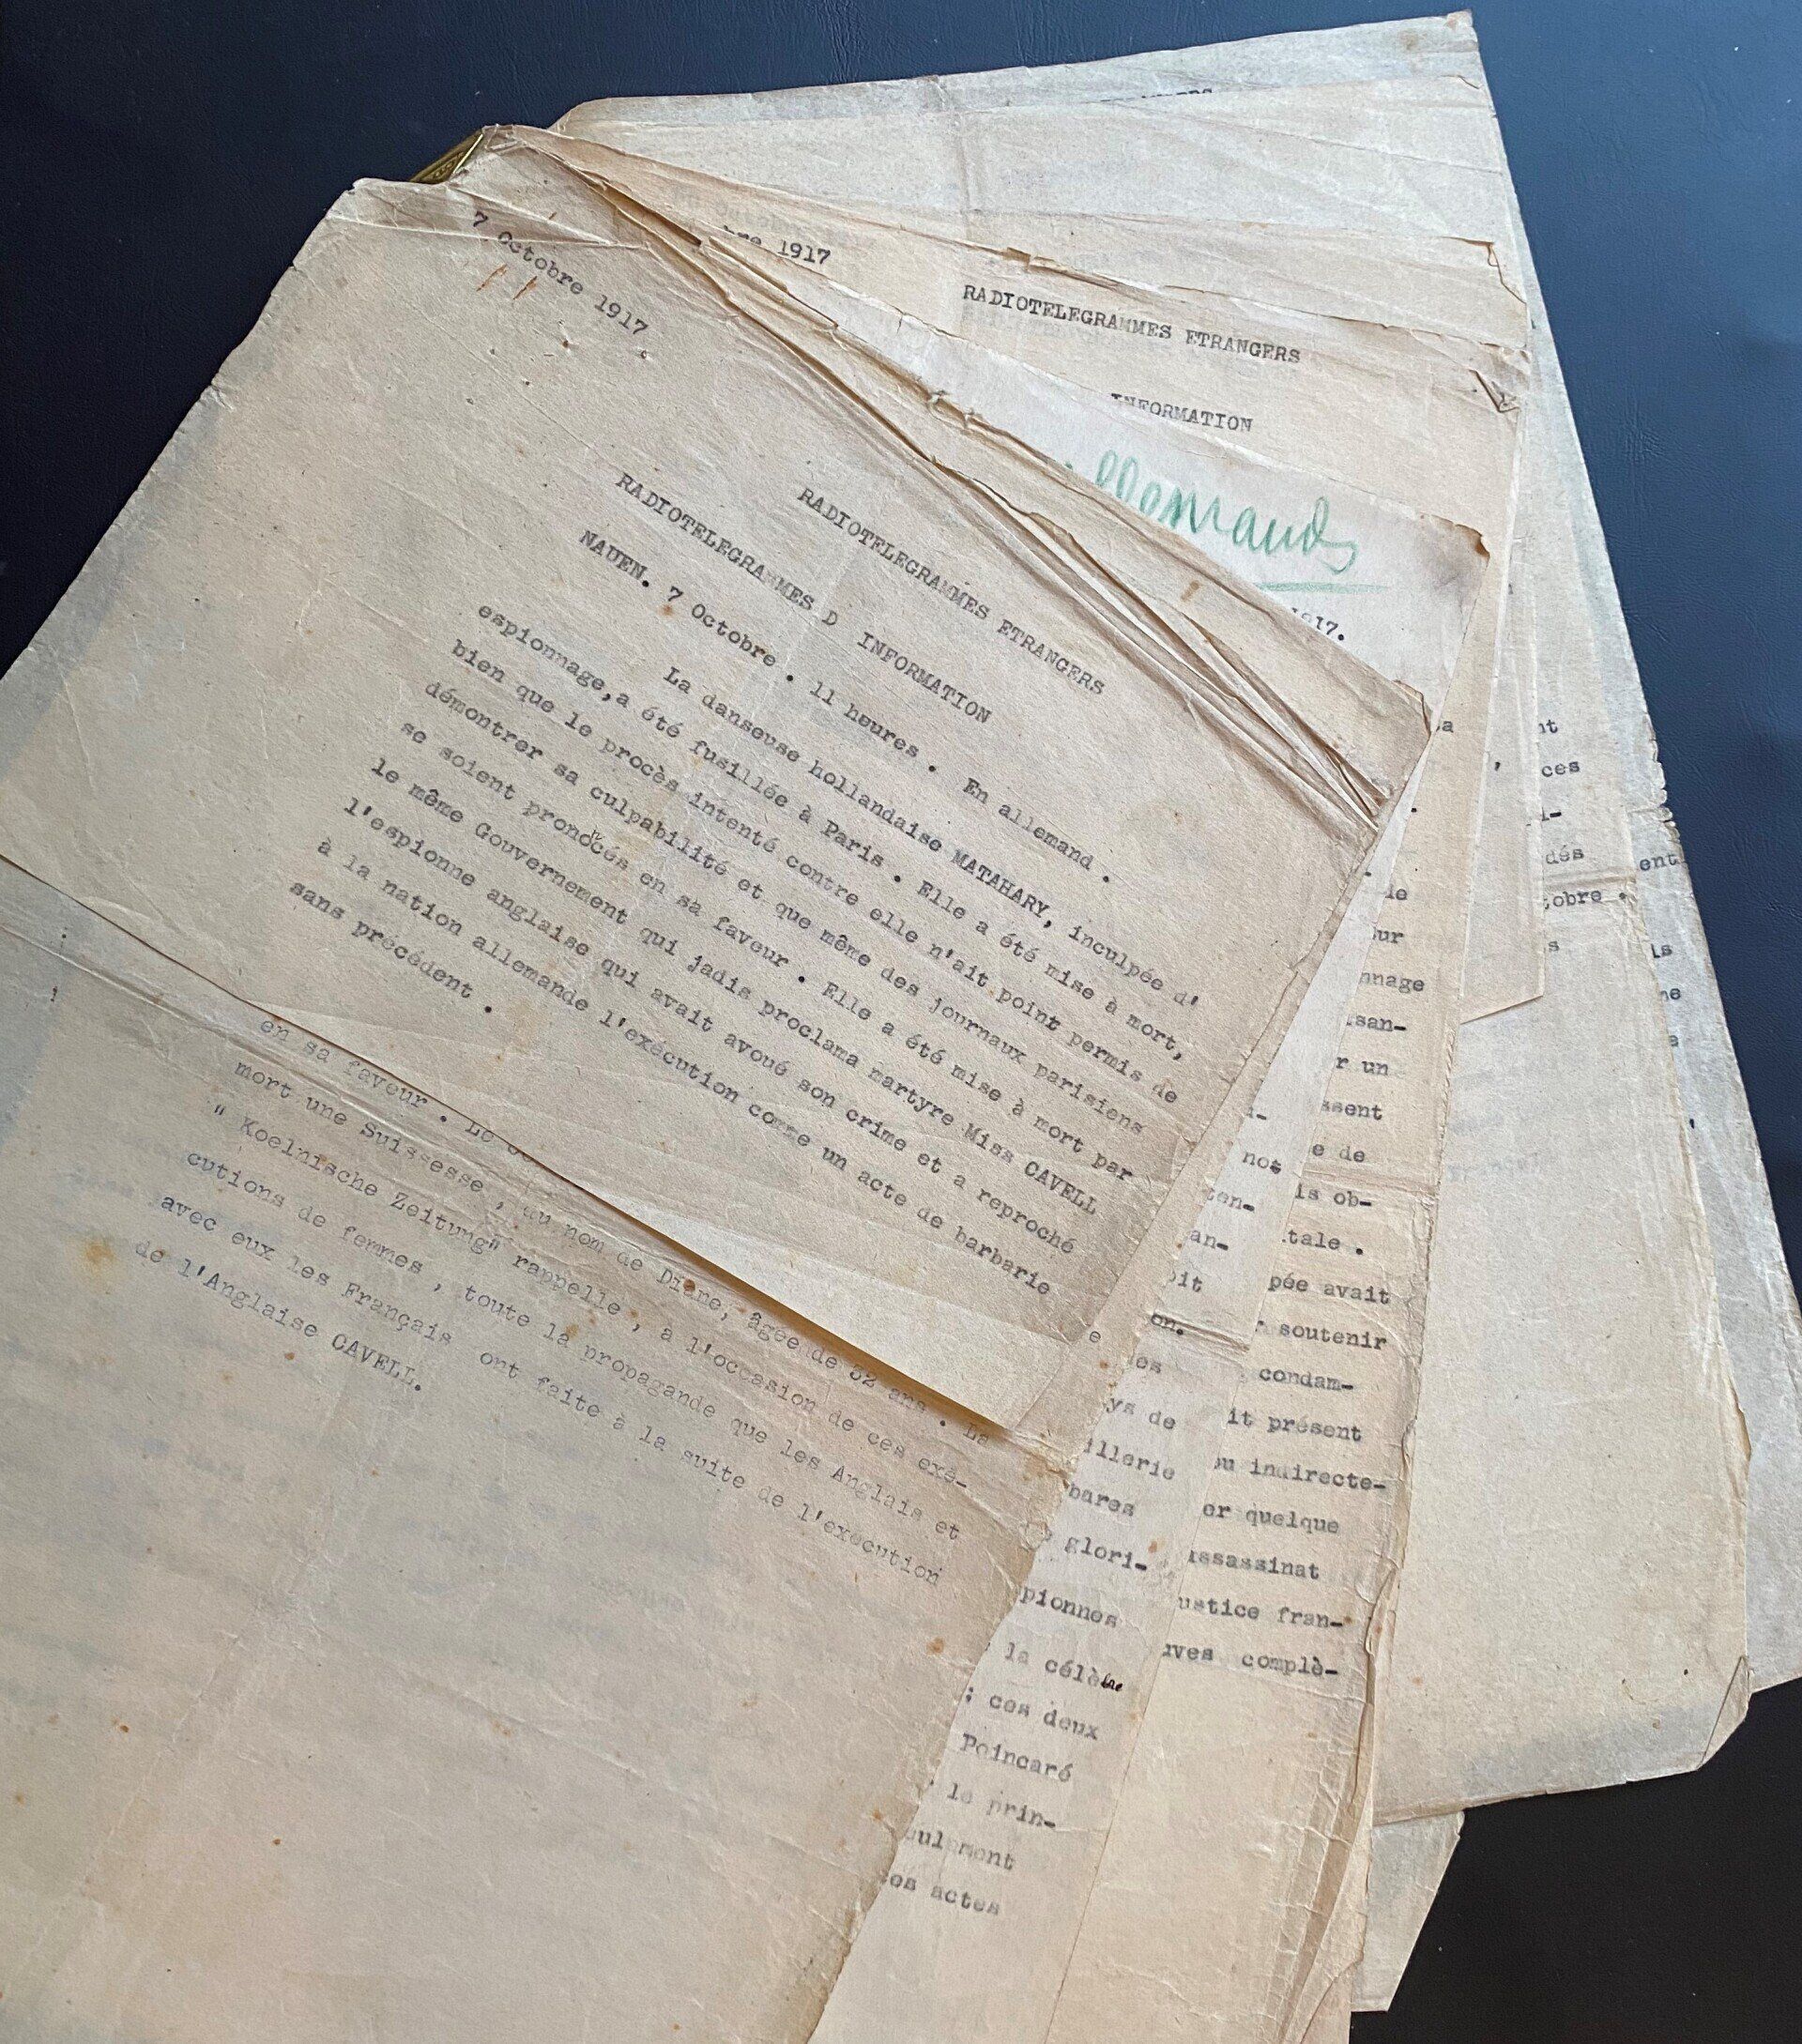 7 Octobre 1917.
RADIOTELEGRAMMES ETRANGERS
RADIOTELEGRAMMES D INFORMATION
NAUEN. 7 Octobre . 11 heures . En allemand .
La danseuse hollandaise MATAHARY, inculpée d'
espionnage,a été fusillée à Paris . Elle a été mise à mort,
bien que le procès intenté contre elle n'ait point permis de
démontrer sa culpabilité et que même des journaux parisiens
se soient prononcés en sa faveur . Elle a été mise à mort par
le même Gouvernement qui jadis proclama martyre Miss CAVELL
l'espionne anglaise qui avait avoué son crime et a reproché
à la nation allemande l'exécution comme un acte de barbarie
sans précédent .
en sa faveur . Le
mort une Suissesse , au nom de Diane, âgée de 32 ans . La
" Koelnische Zeitung" rappelle , à l'occasion de ces exé-
cutions de femmes , toute la propagande que les Anglais et
avec eux les Français ont faite à la suite de l'exécution
de l'Anglaise CAVELL.
1917
RADIOTELEGRAMMES ETRANGERS
INFORMATION
llemands
1917.
not
ten-
an-
oit
on.
es
ys de
illerie
bares
glori-
pionnes
la célè
; ces deux
Poincaré
le prin-
ulement
os actes
nnage
r un
ssent
e de
is ob-
tale .
pée avait
soutenir
condam-
it présent
ou indirecte-
er quelque
assassinat
ustice fran-
uves complè-
nt
ces
dés
tobre .
s
ent
is
ne
e